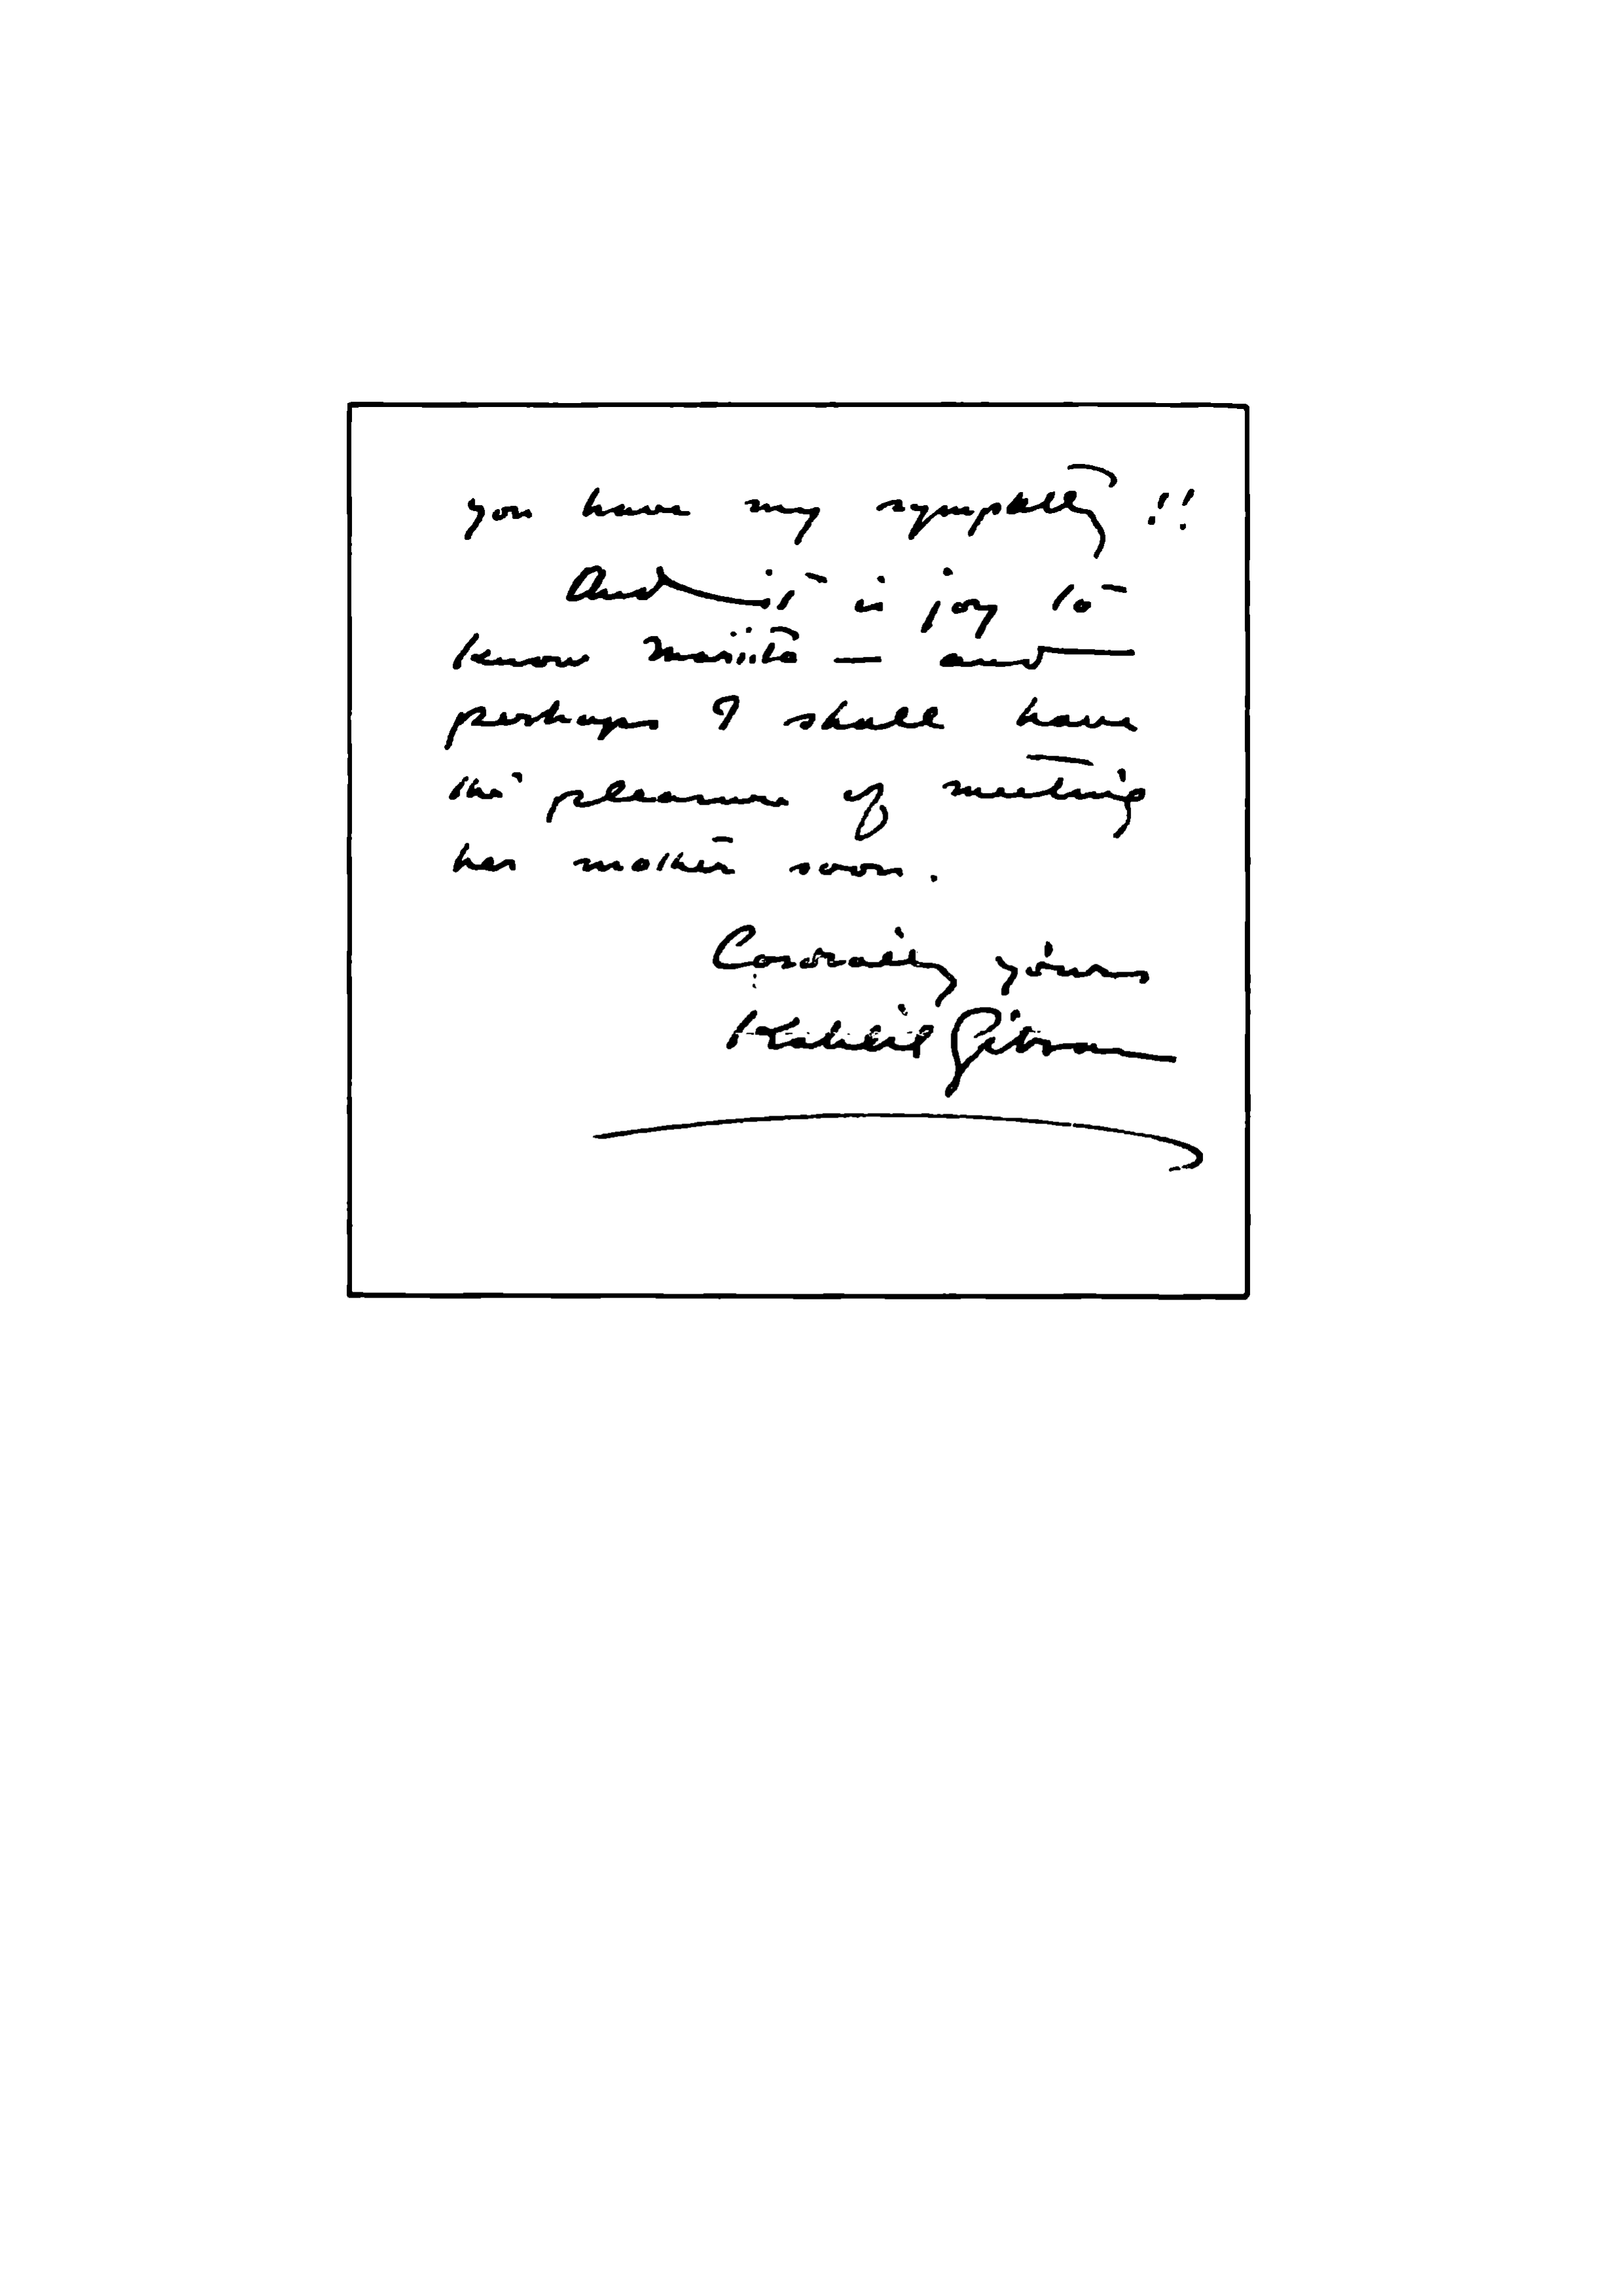 you have my sympathy !!
And it is joy to
know Mariita — and
perhaps I shall have
the pleasure of meeting
her mother soon.
Cordially yours
Kahlil Gibran